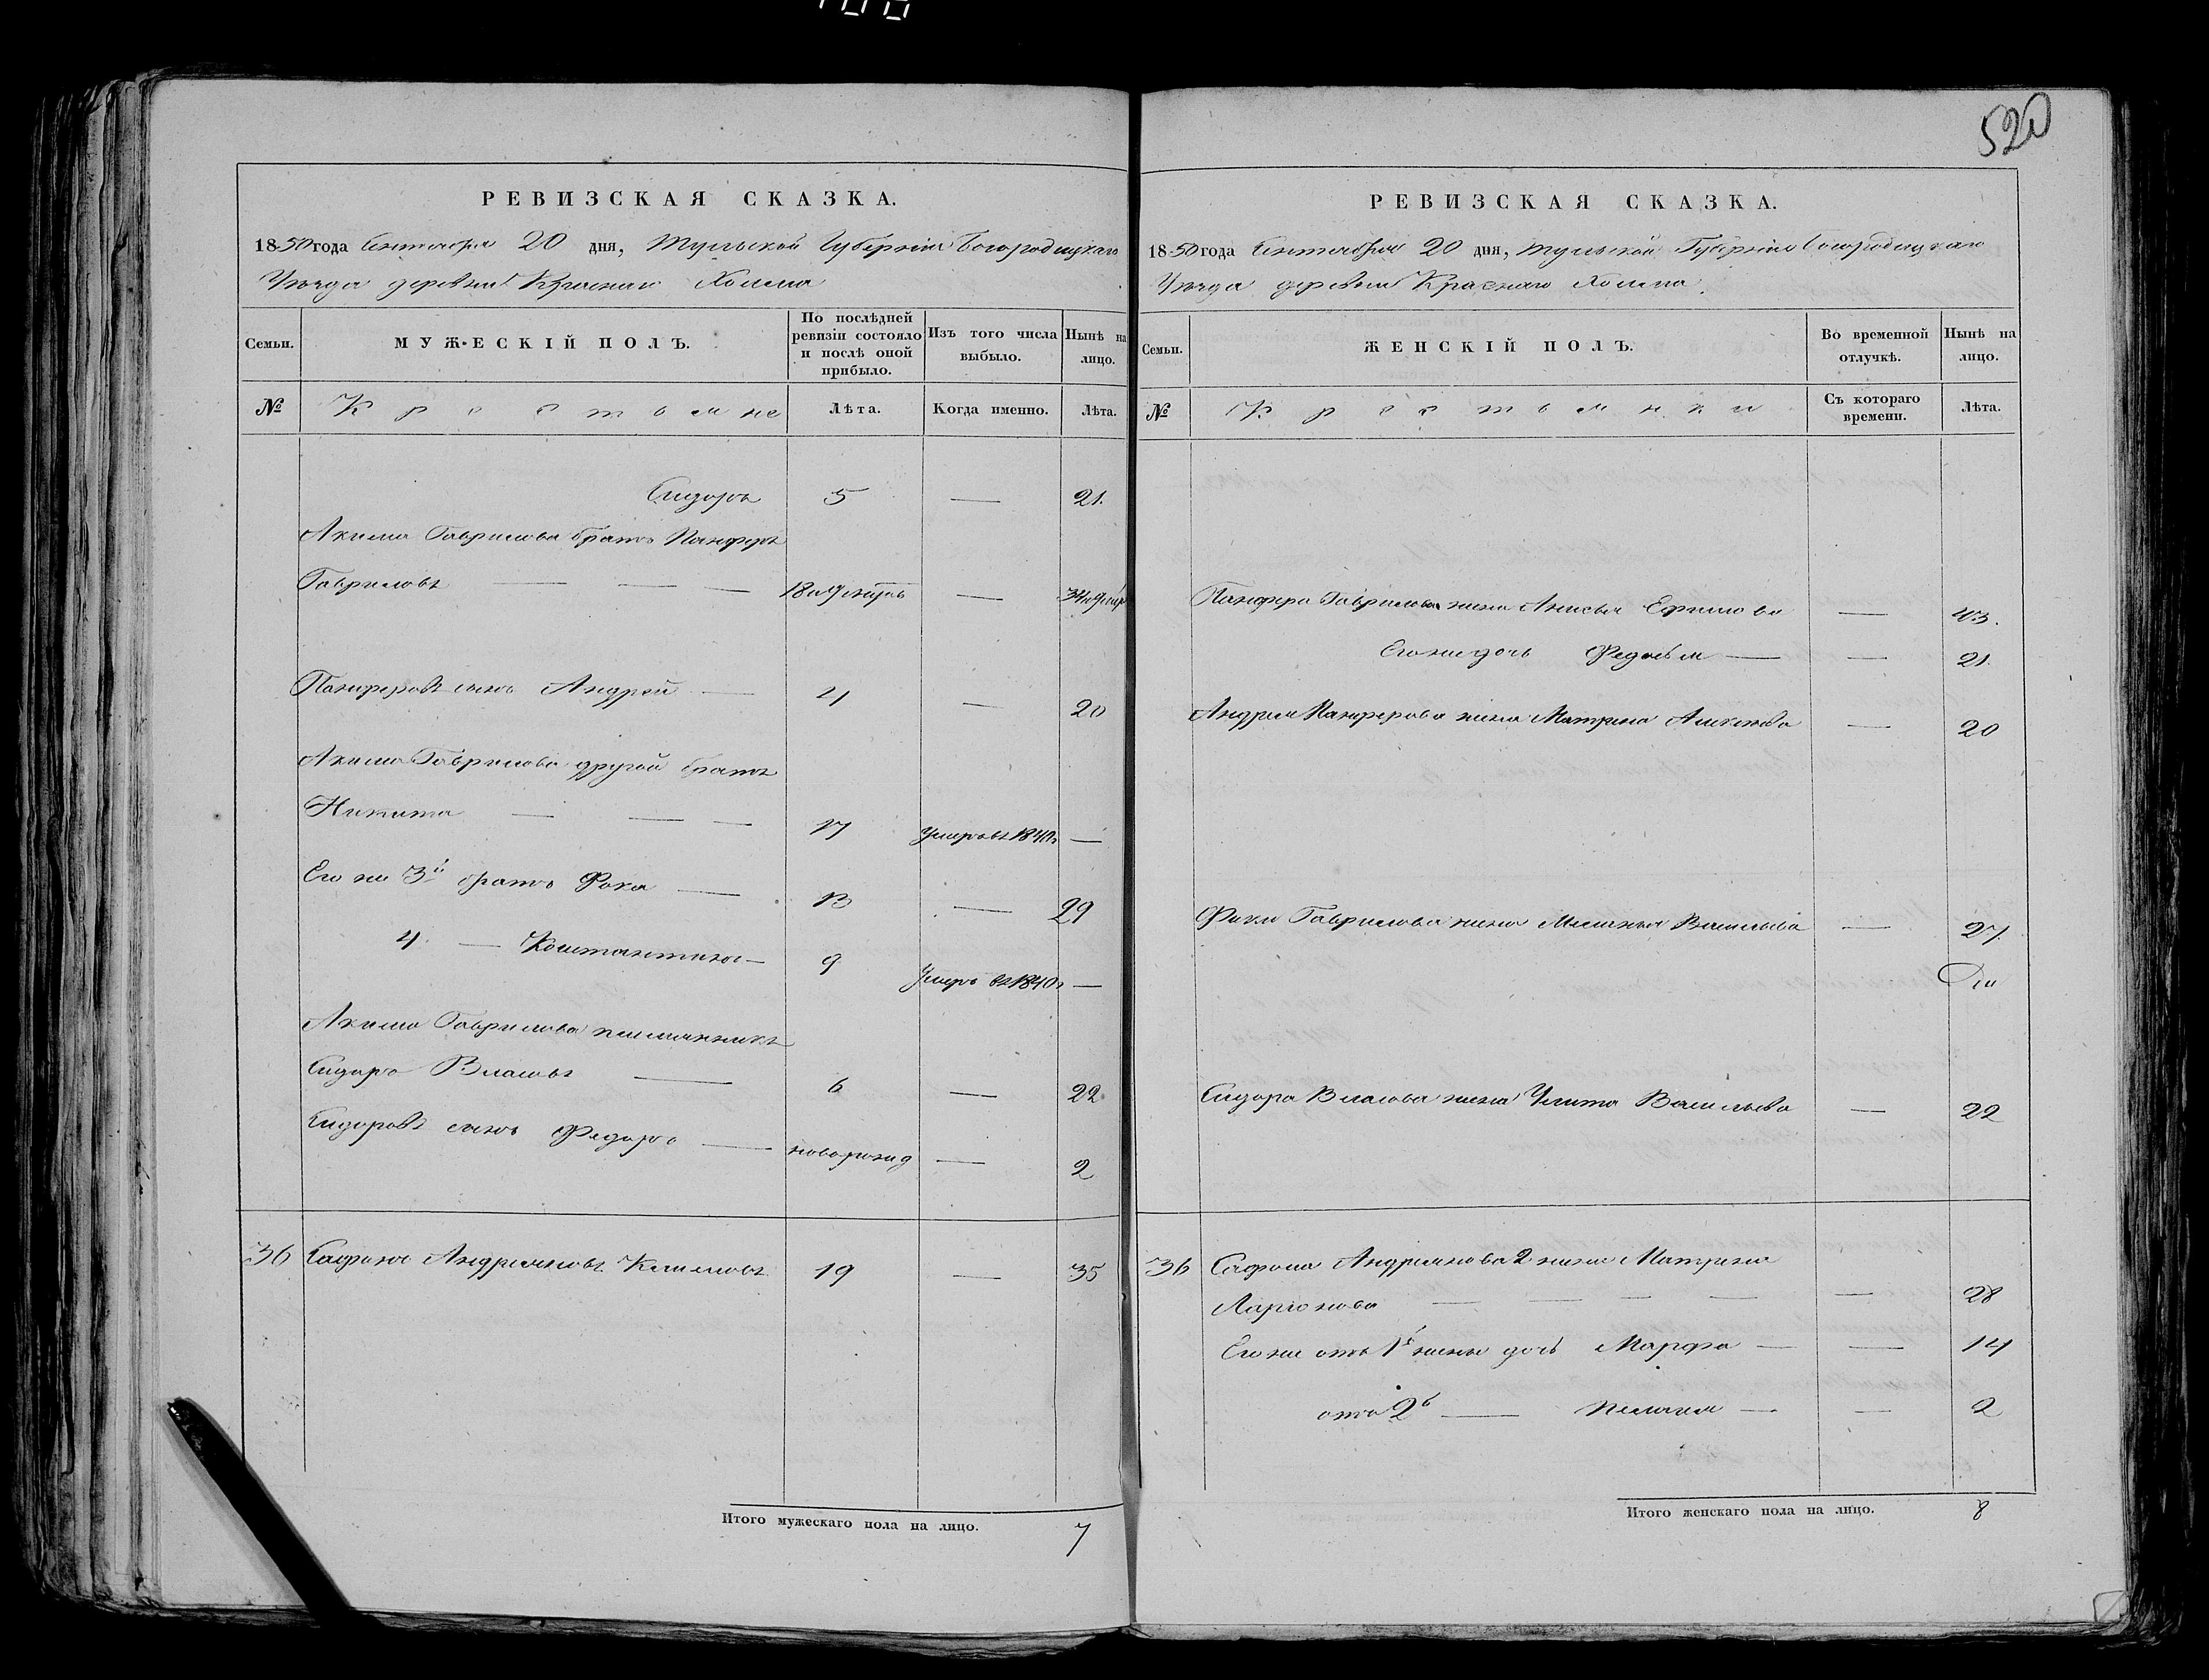 520
РЕВИЗСКАЯ СКАЗКА.
1850 года Сентября 20 дня, Тульской Губернии Богородицкаго
Уезда деревни Краснаго Холма
Семьи. МУЖЕСКІЙ ПОЛЪ. По послѣдней ревизіи состояло и послѣ оной прибыло. Изъ того числа выбыло. Нынѣ на лицо.
№ Крестьяне Лѣта. Когда именно. Лѣта.
Сидоръ 5 — 21.
Акима Гаврилова братъ Панферъ
Гавриловъ — — — 18 —
Панферовъ сынъ Андрей — 4 — 20
Акима Гаврилова другой братъ
Никита — — — 17 умеръ въ —
Его же 3й братъ Фока — 13 — 29
4. — Константинъ — 9 Умеръ въ 1840г —
Акима Гаврилова племянникъ
Сидоръ Власовъ — 6 — 22
Сидоровъ сынъ Федоръ — новорожд — 2
36 Сафонъ Андреяновъ 19 — 35
Итого мужескаго пола на лицо. 7
РЕВИЗСКАЯ СКАЗКА.
1850 года Сентября 20 дня, Тульской Губернии Богородицкаго
Уезда деревни Краснаго Холма.
Семьи. ЖЕНСКІЙ ПОЛЪ. Во временной отлучкѣ. Нынѣ на лицо.
№ Крестьянки Съ котораго времени. Лѣта.
Панфера Гаврилова жена Анисья Ефимова — 43.
Его же дочь Федосья — — 21.
Андрея Панферова жена Матрена — 20
Фоки Гаврилова жена Меланья Васильева — 27.
Сидора Власова жена Улита Васильева — 22
36 Сафона Андреянова 2 жена Матрена
Ларионова — — — — — 28
Его же отъ 1й жены дочь Марфа — — 14
отъ 2й — Пелагея — — 2
Итого женскаго пола на лицо. 8